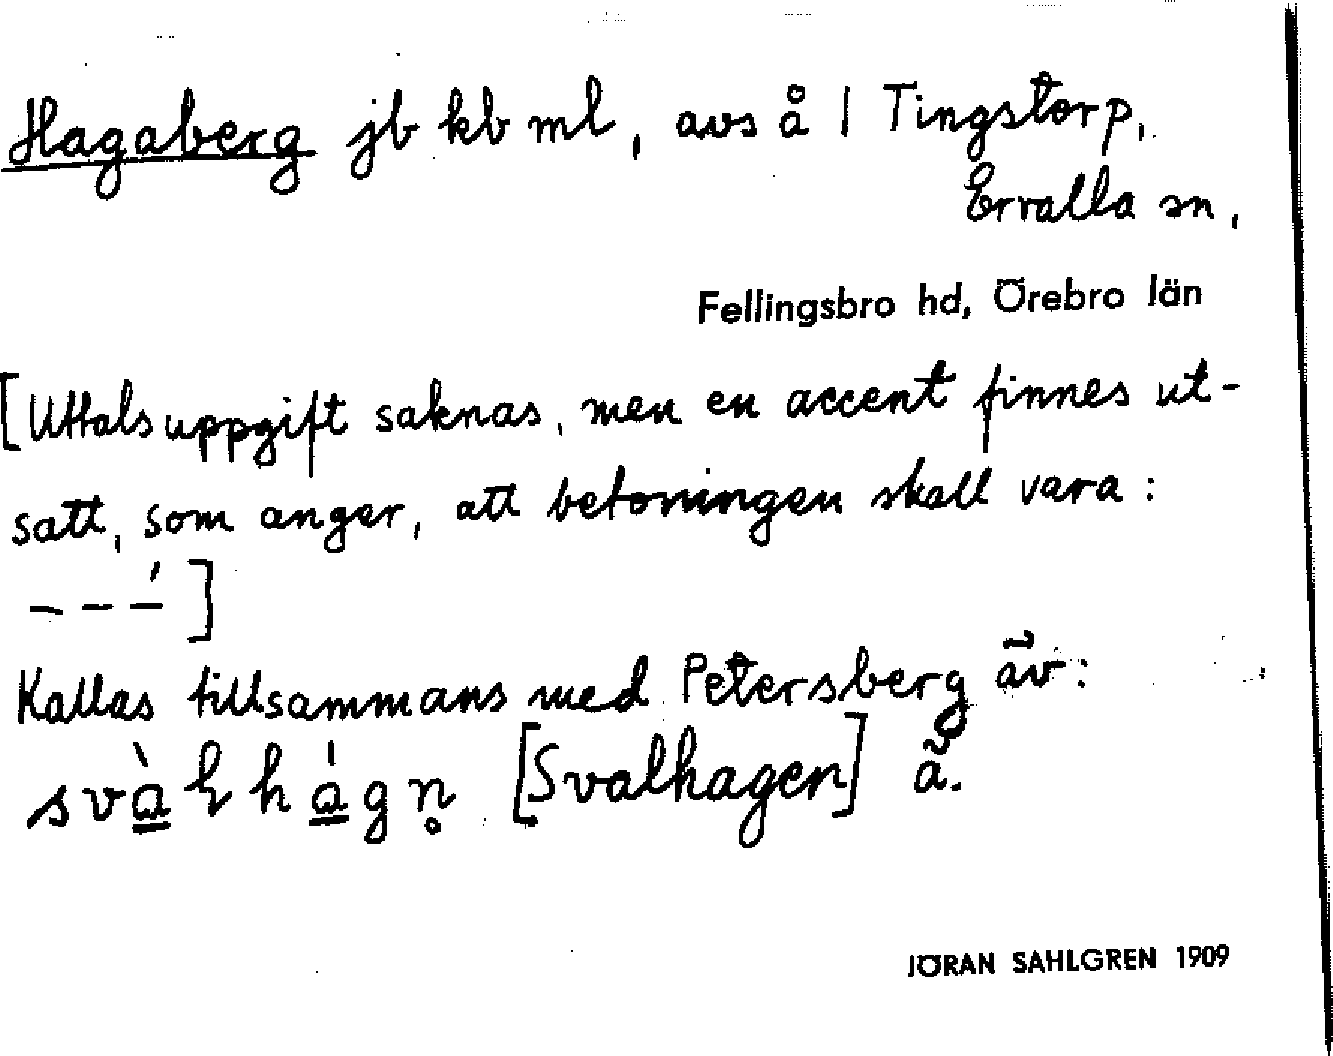 Hagaberg jb kb ml, avs å 1 Tingstorp,
Ervalla sn,
Fellingsbro hd, Örebro län
[Uttalsuppgift saknas, men en accent finnes ut-
satt, som anger, att betoningen skall vara :
– – –́ ]
Kallas tillsammans med Petersberg äv:
svà̱ɬhá̱gn̥ [Svalhagen] ã.
JÖRAN SAHLGREN 1909